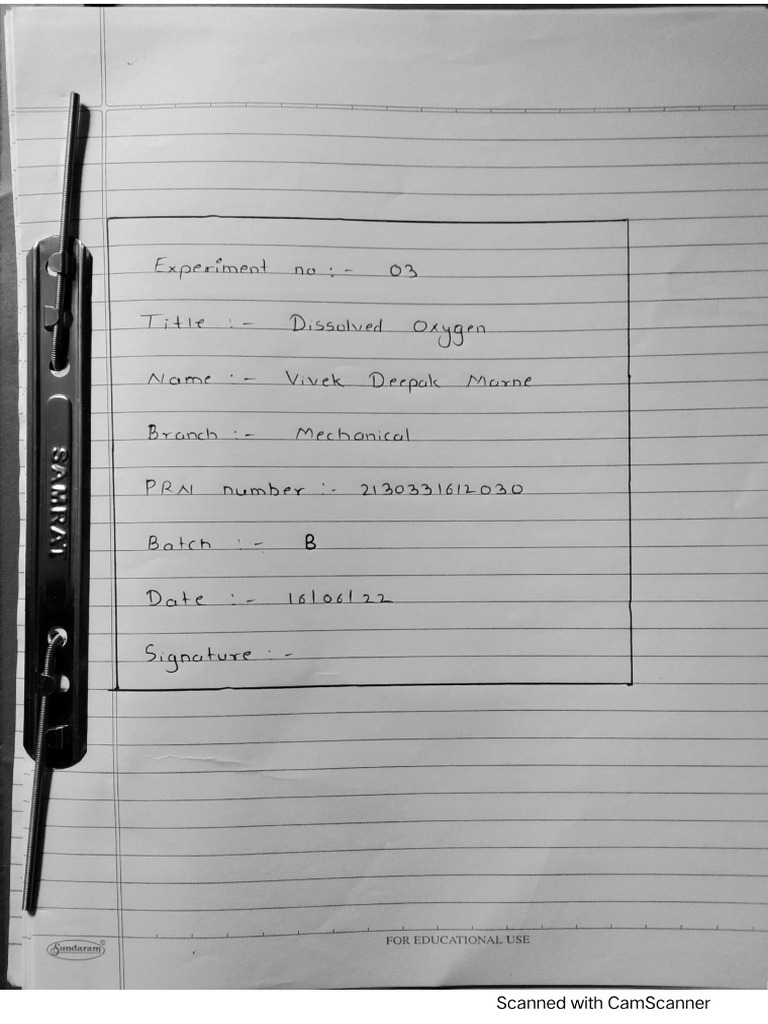 Experiment no :- 03
Title :- Dissolved Oxygen
Name :- Vivek Deepak Marne
Branch :- Mechanical
PRN number :- 2130331612030
Batch :- B
Date :- 16/06/22
Signature :-
SAMRAT
Sundaram®
FOR EDUCATIONAL USE
Scanned with CamScanner